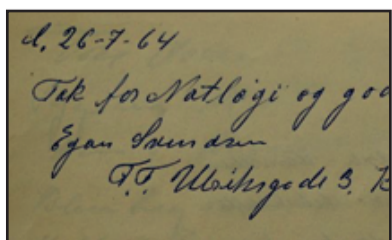 d. 26-7-64
Tak for Natlogi og god
Egon Svendsen
F.F. Ulriksgade 3. K